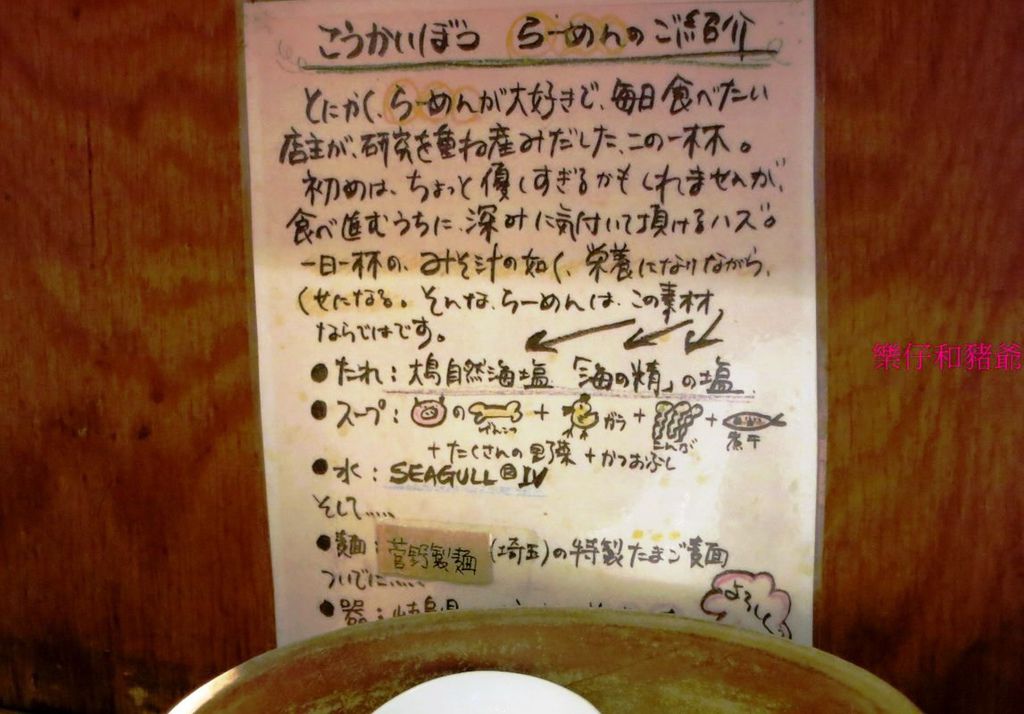 こうかいぼう らーめんのご紹介
とにかく、らーめんが大好きで、毎日食べたい
店主が、研究を重ね産みだした、この一杯。
初めは、ちょっと優しすぎるかもしれませんが、
食べ進むうちに、深みに気付いて頂けるハズ。
一日一杯の、みそ汁の如く、栄養になりながら、
くせになる。そんな、らーめんは、この素材
ならではです。
●たれ：大島自然海塩「海の精」の塩
●スープ： の げんこつ + ガラ + こんぶ + 煮干
+たくさんの野菜+かつおぶし
●水：SEAGULL Ⅳ
そして.....
●麺：菅野製麺(埼玉)の特製たまご麺
ついでに.....
●器：岐阜県
よろしく
樂仔和豬爺